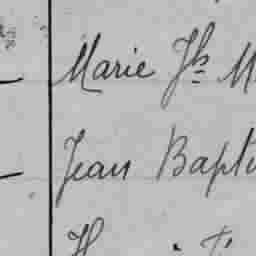 Marie Jh M
Jean Bapti